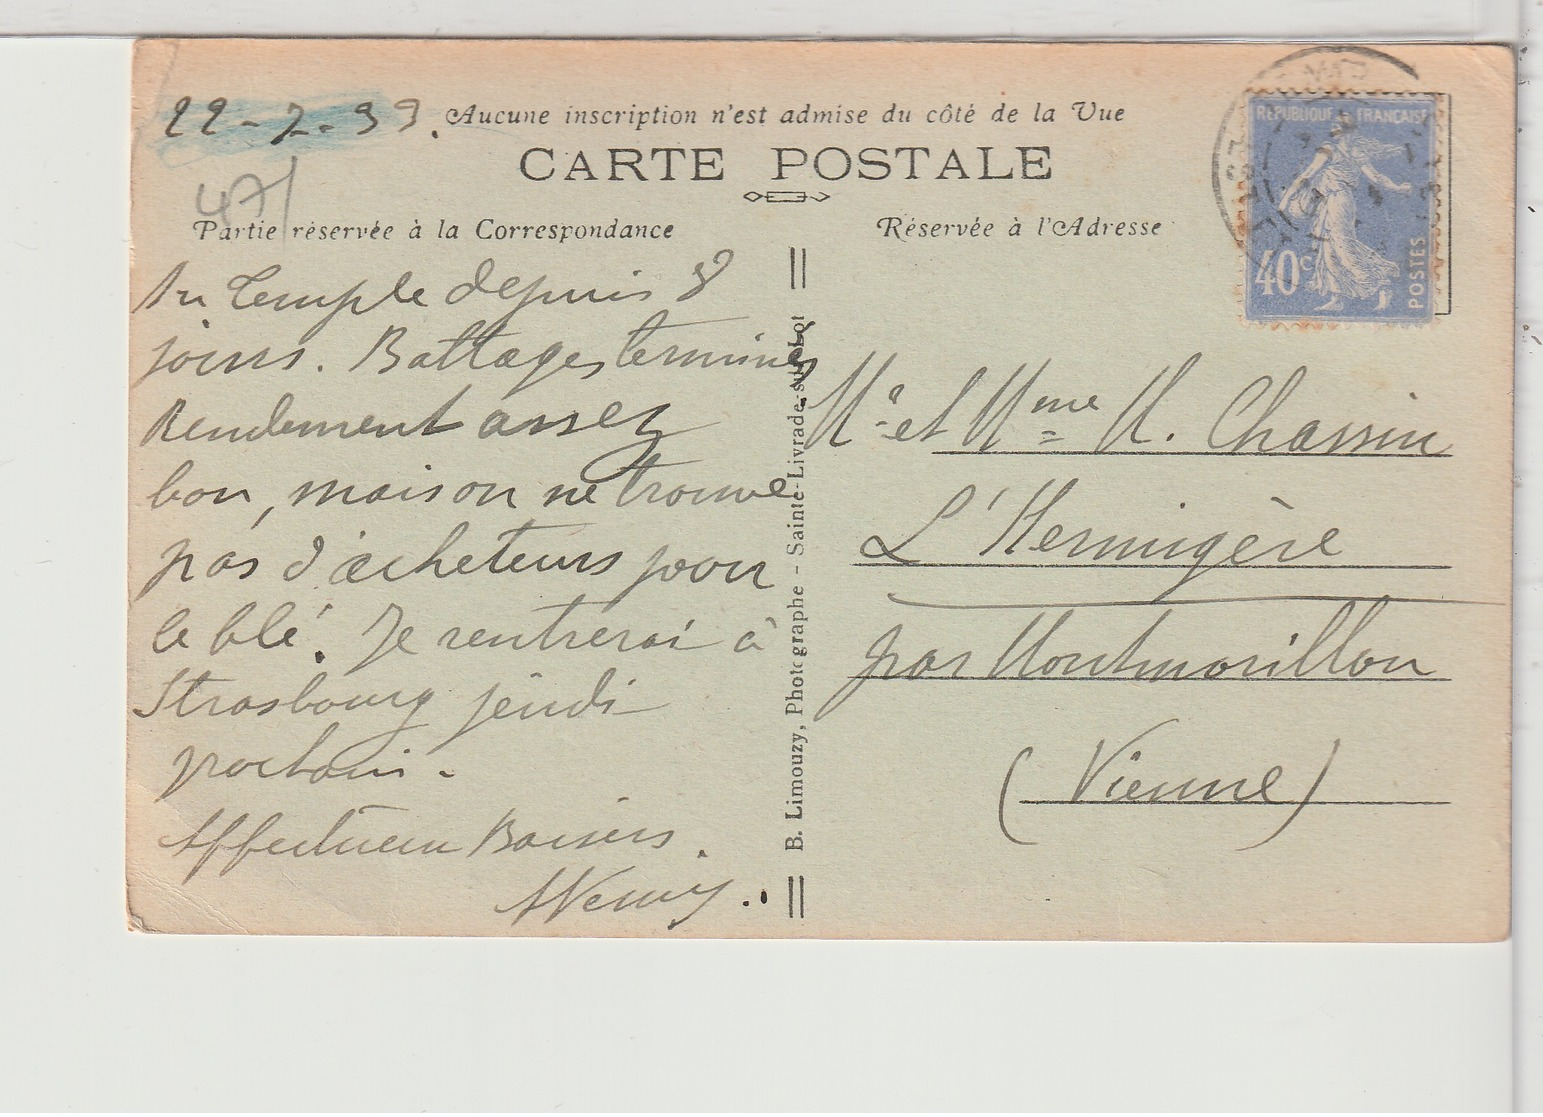 22-7-33.
Aucune inscription n'est admise du côté de la Vue
CARTE POSTALE
47/
Partie réservée à la Correspondance
Réservée à l'Adresse
REPUBLIQUE FRANÇAISE
40c
POSTES
Au Temple depuis 8
jours. Battages terminés
Rendement assez
bon, mais on ne trouve
pas d'acheteurs pour
le blé. Je rentrerai à
Strasbourg jeudi
prochain.
Affectueux Baisers.
B. Limouzy, Photographe - Sainte-Livrade-sur-Lot
Mr et Mme M. Chassin
L'Hermigère
par Montmorillon
(Vienne)